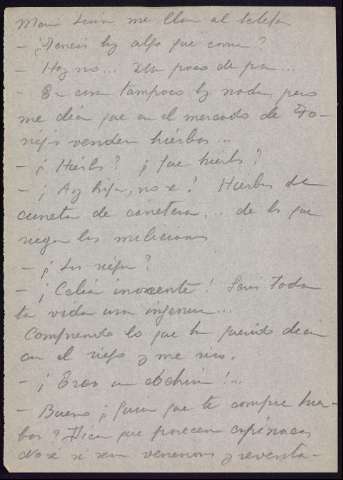 Maria Luisa me llama al telefo
— ¿Teneis hoy algo que comer?
— Hoy no... Un poco de pan...
— En casa tampoco hay nada, pero
me dicen que en el mercado de To-
rrijos venden hierbas...
— ¿Hierbas? ¿Que hierbas?
— ¡Ay hija, no sé! Hierbas de
cuneta de carretera... de las que
riegan los milicianos
— ¿Las riegan?
— ¡Celia inocente! Seras toda
la vida una ingenua...
Comprendo lo que ha querido decir
con el riego y me rio.
— ¡Eres un cochina!...
— Bueno ¿quieres que te compre hier-
bas? Dicen que parecen espinacas
No sé si son venenosas y reventa-